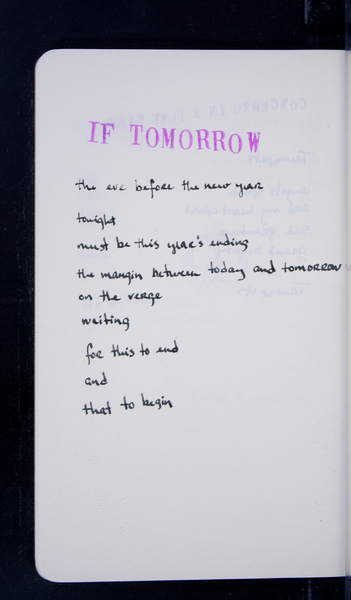 IF TOMORROW
the eve before the new year
tonight
must be this year's ending
the margin between today and tomorrow
on the verge
waiting
for this to end
and
that to begin